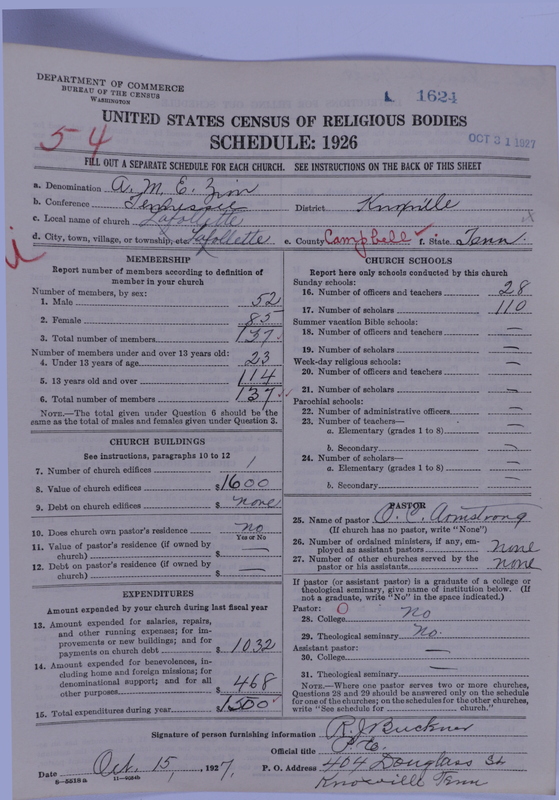 DEPARTMENT OF COMMERCE
BUREAU OF THE CENSUS
WASHINGTON
1624
UNITED STATES CENSUS OF RELIGIOUS BODIES
54
SCHEDULE: 1926
OCT 31 1927
FILL OUT A SEPARATE SCHEDULE FOR EACH CHURCH. SEE INSTRUCTIONS ON THE BACK OF THIS SHEET
a. Denomination A. M. E. Zion
b. Conference Tennessee District Knoxville
c. Local name of church Lafollette
d. City, town, village, or township, etc Lafollette e. County Campbell f. State Tenn.
MEMBERSHIP
Report number of members according to definition of
member in your church
Number of members, by sex:
1. Male 52
2. Female 85
3. Total number of members 137
Number of members under and over 13 years old:
4. Under 13 years of age 23
5. 13 years old and over 114
6. Total number of members 137
NOTE.—The total given under Question 6 should be the
same as the total of males and females given under Question 3.
CHURCH BUILDINGS
See instructions, paragraphs 10 to 12
7. Number of church edifices 1
8. Value of church edifices $1600
9. Debt on church edifices $ none
10. Does church own pastor's residence no
Yes or No
11. Value of pastor's residence (if owned by
church) $ —
12. Debt on pastor's residence (if owned by
church) $ —
EXPENDITURES
Amount expended by your church during last fiscal year
13. Amount expended for salaries, repairs,
and other running expenses; for im-
provements or new buildings; and for
payments on church debt $ 1032
14. Amount expended for benevolences, in-
cluding home and foreign missions; for
denominational support; and for all
other purposes $ 468
15. Total expenditures during year $1500
CHURCH SCHOOLS
Report here only schools conducted by this church
Sunday schools:
16. Number of officers and teachers 28
17. Number of scholars 110
Summer vacation Bible schools:
18. Number of officers and teachers —
19. Number of scholars —
Week-day religious schools:
20. Number of officers and teachers —
21. Number of scholars —
Parochial schools:
22. Number of administrative officers —
23. Number of teachers—
a. Elementary (grades 1 to 8) —
b. Secondary —
24. Number of scholars—
a. Elementary (grades 1 to 8) —
b. Secondary —
PASTOR
25. Name of pastor O. C. Armstrong
(If church has no pastor, write "None")
26. Number of ordained ministers, if any, em-
ployed as assistant pastors none
27. Number of other churches served by the
pastor or his assistants none
If pastor (or assistant pastor) is a graduate of a college or
theological seminary, give name of institution below. (If
not a graduate, write "No" in the space indicated.)
Pastor: O
28. College no
29. Theological seminary no.
Assistant pastor:
30. College —
31. Theological seminary —
NOTE.—Where one pastor serves two or more churches,
Questions 28 and 29 should be answered only on the schedule
for one of the churches; on the schedules for the other churches,
write "See schedule for church."
Signature of person furnishing information R. J. Buckner
Official title P. E.
Date Oct. 15, 1927. P. O. Address 404 Douglass St
Knoxville Tenn
8—5518a